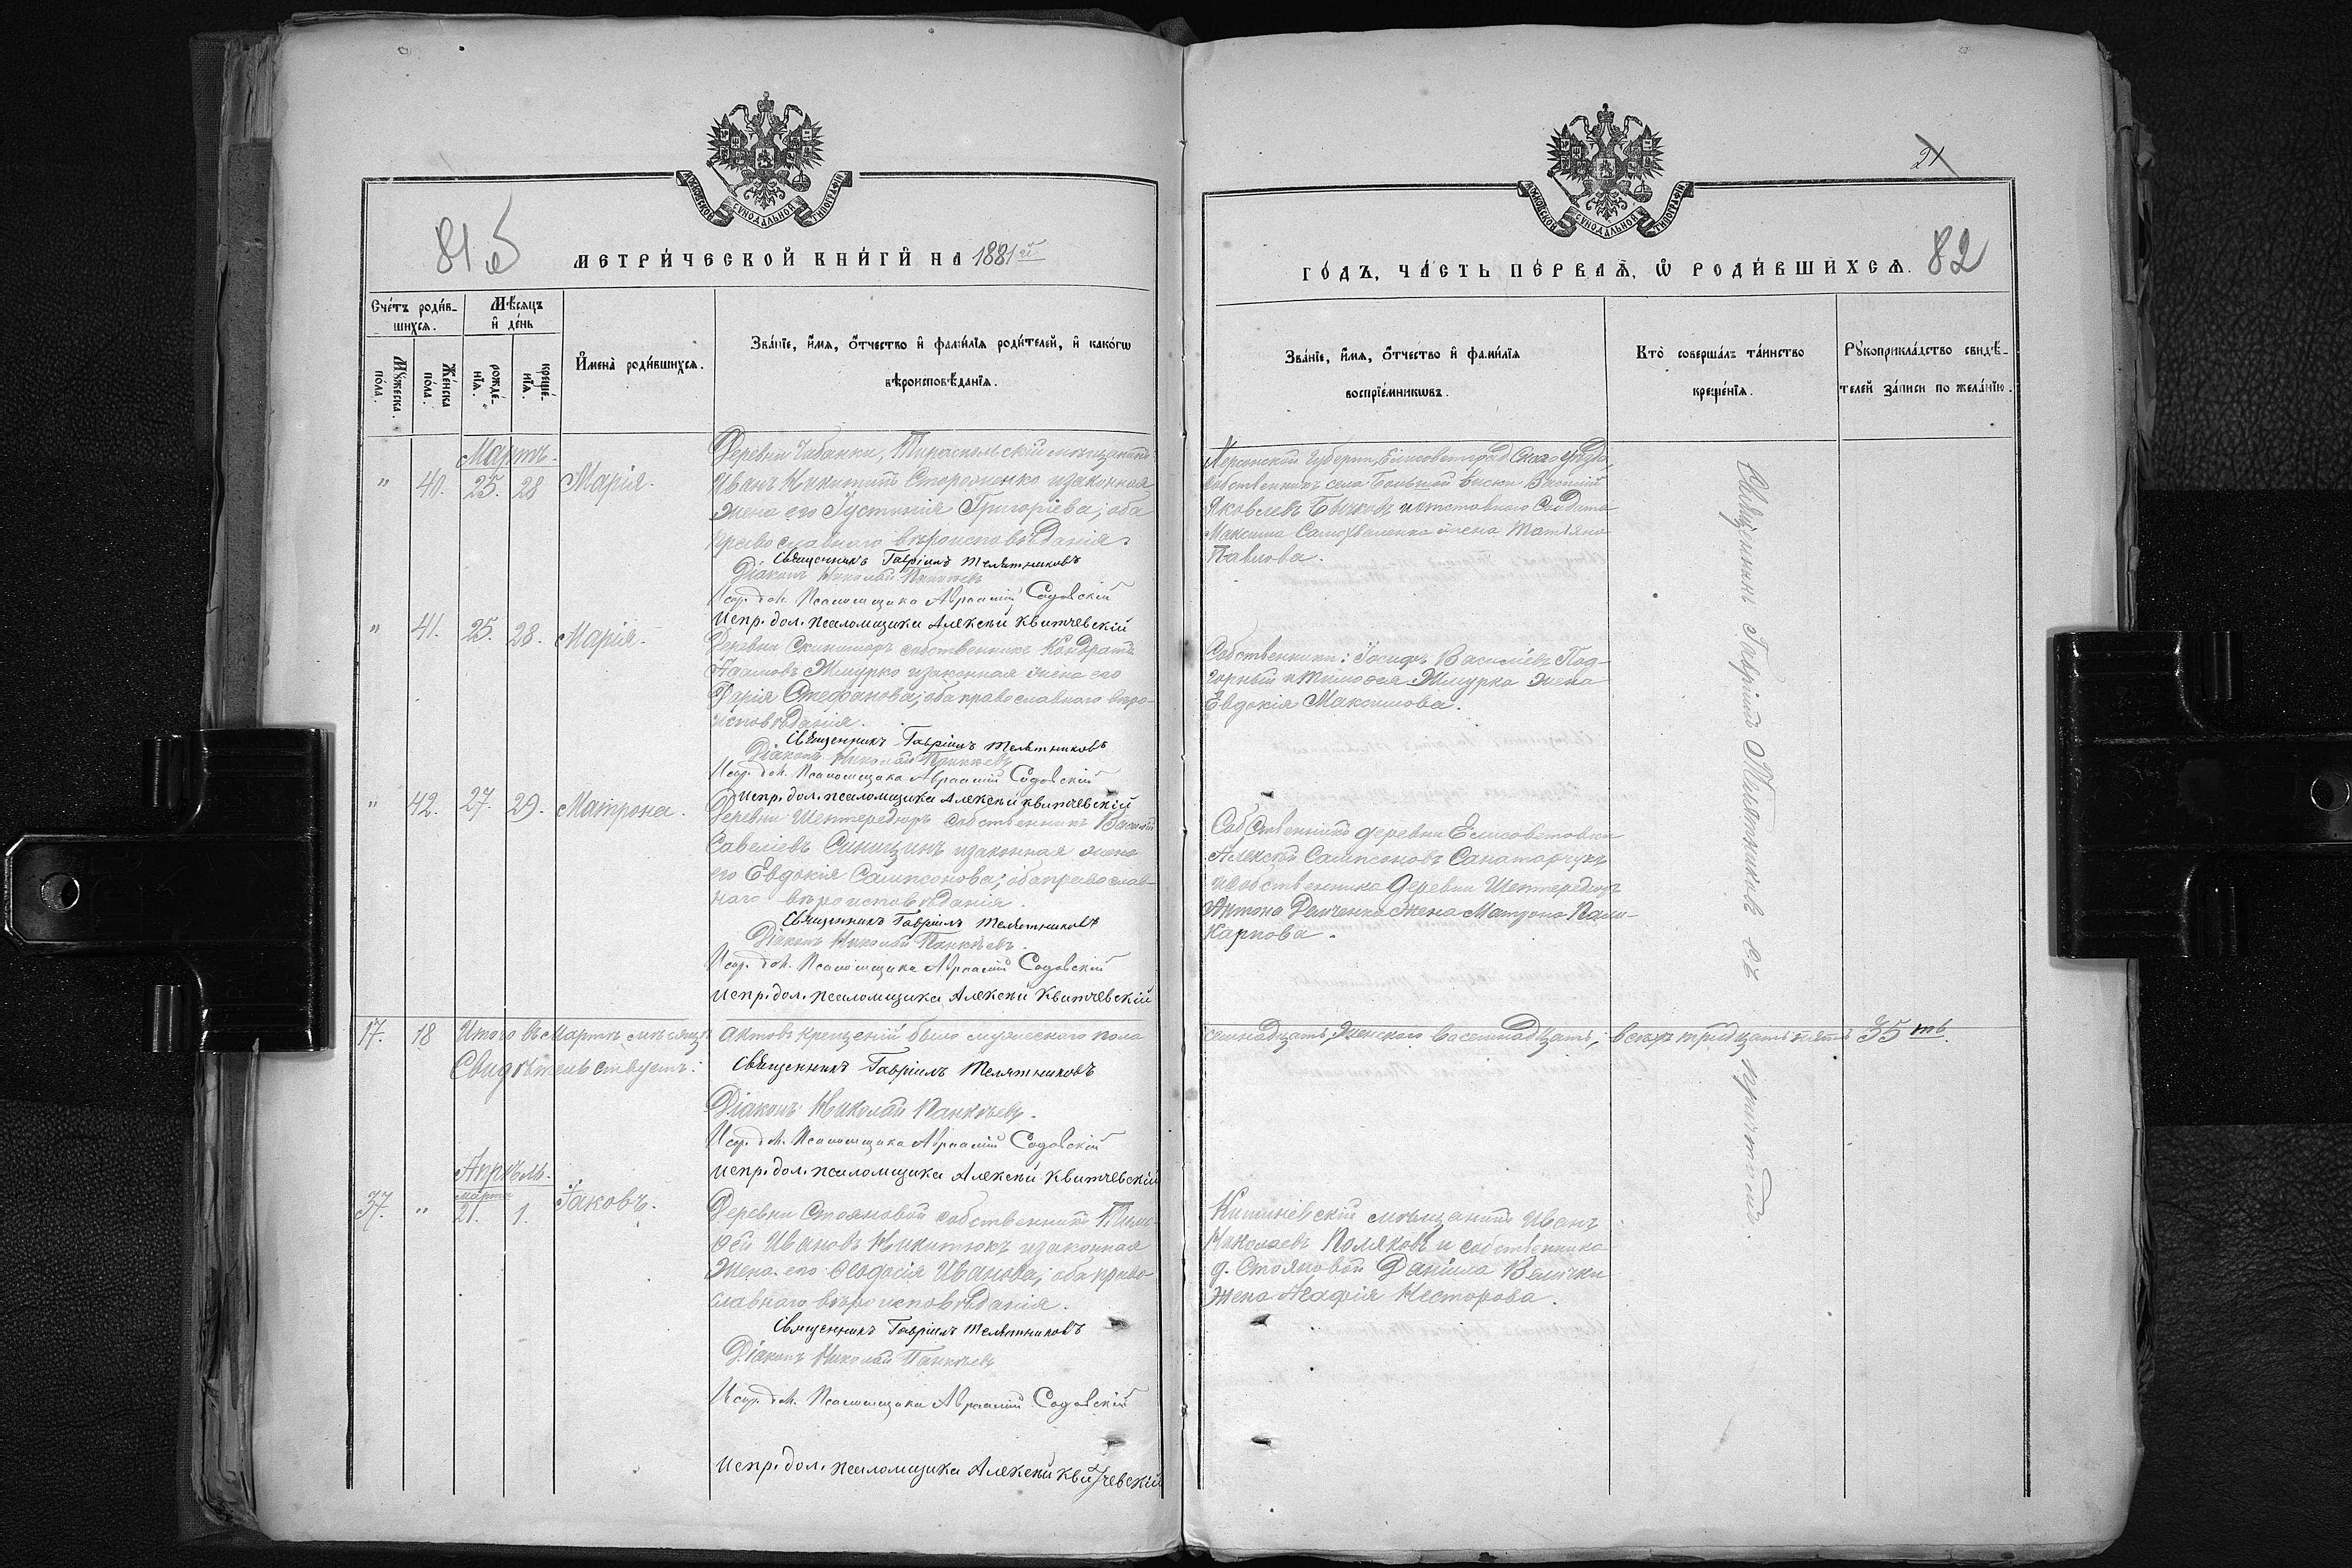 МОСКОВСКОЙ СѴНОДАЛЬНОЙ ТИПОГРАФІИ
81 б
МЕТРИ́ЧЕСКОЙ КНИ́ГИ НА 1881й
Сче́тъ роди́в-
шихся.
Мѣ́сяцъ
и де́нь
Мꙋ́жеска
по́ла.
Же́нска
по́ла.
рожде́-
нїя.
креще́-
нїя.
И҆мена̀ роди́вшихся.
Зва́нїе, и҆́мя, ѻ҆́тчество и҆ фами́лїя роди́телей, и҆ како́гѡ
вѣроисповѣ́данїя.
Мартъ.
" 40. 25. 28 Марія.
Деревни Чабанки, Тираспольскій мѣщанинъ
Иванъ Никитинъ Стороженко и законная
жена его Іустинія Григоріева; оба
православнаго вѣроисповѣданія.
Священникъ Гавріилъ Телятниковъ
Діаконъ Николай Панкѣевъ
Испр. дол. Псаломщика Авраамій Содовскій
Испр. дол. псаломщика Алексѣй Квитчевскій
" 41. 25. 28. Марія.
Деревни собственникъ Кондратъ
Адамовъ Жмурко и законная жена его
Дарія Стефанова; оба православнаго вѣро-
исповѣданія.
Священникъ Гавріилъ Телятниковъ
Діаконъ Николай Панкѣевъ
Испр. дол. Псаломщика Авраамій Содовскій
Испр. дол. псаломщика Алексѣй Квитчевскій
" 42. 27. 29. Матрона.
Деревни Шентередюръ собственникъ Василій
Савеліевъ Синицинъ и законная жена
его Евдокія Сампсонова; оба православ-
наго вѣроисповѣданія.
Священникъ Гавріилъ Телятниковъ
Діаконъ Николай Панкѣевъ.
Испр. дол. Псаломщика Авраамій Содовскій
Испр. дол. псаломщика Алексѣй Квитчевскій
17. 18 Итого въ Мартѣ мѣсяцѣ актовъ крещеній было мужескаго пола
Свидѣтельствуетъ: Священникъ Гавріилъ Телятниковъ
Діаконъ Николай Панкѣевъ.
Испр. дол. Псаломщика Авраамій Содовскій
Испр. дол. псаломщика Алексѣй Квитчевскій
Апрѣль.
марта
37. " 21. 1. Іаковъ.
Деревни Стояновой собственникъ Тимо-
ѳей Ивановъ Никитюкъ и законная
жена его Ѳеодосія Иванова; оба право-
славнаго вѣроисповѣданія.
Священникъ Гавріилъ Телятниковъ
Діаконъ Николай Панкѣевъ
Испр. дол. Псаломщика Авраамій Содовскій
Испр. дол. псаломщика Алексѣй Квитчевскій
21
МОСКОВСКОЙ СѴНОДАЛЬНОЙ ТИПОГРАФІИ
ГО́ДЪ, ЧА́СТЬ ПЕ́РВАѦ, Ѡ҆ РОДИ́ВШИХСѦ. 82
Зва́нїе, и҆́мя, ѻ҆́тчество и҆ фами́лїя
воспрїе́мникѡвъ.
Кто̀ соверша́лъ та́инство
креще́нїя.
Рꙋкоприкла́дство свидѣ́-
телей за́писи по жела́нїю.
Херсонской Губерніи, Елисоветградскаго уѣзда,
собственникъ села Большой Виски Василій
Яковлевъ Бычковъ и отставного Солдата
Максима Самохваленка жена Татьяна
Павлова.
Собственники: Іосифъ Василіевъ Под-
горный и Тимоѳея Жмурка жена
Евдокія Максимова.
Собственникъ деревни Елисоветовки
Алексѣй Сампсоновъ
и собственника деревни Шентередюръ
Антона Демченка жена Матрона Поли-
карпова.
семнадцать, женскаго восемнадцать, всѣхъ тридцать пять 35 ть.
Кишиневскій мѣщанинъ Иванъ
Николаевъ Поляковъ и собственника
д. Стояновой Даніила Велички
жена Агафія Несторова.
Священникъ Гавріилъ Телятниковъ съ причтомъ.